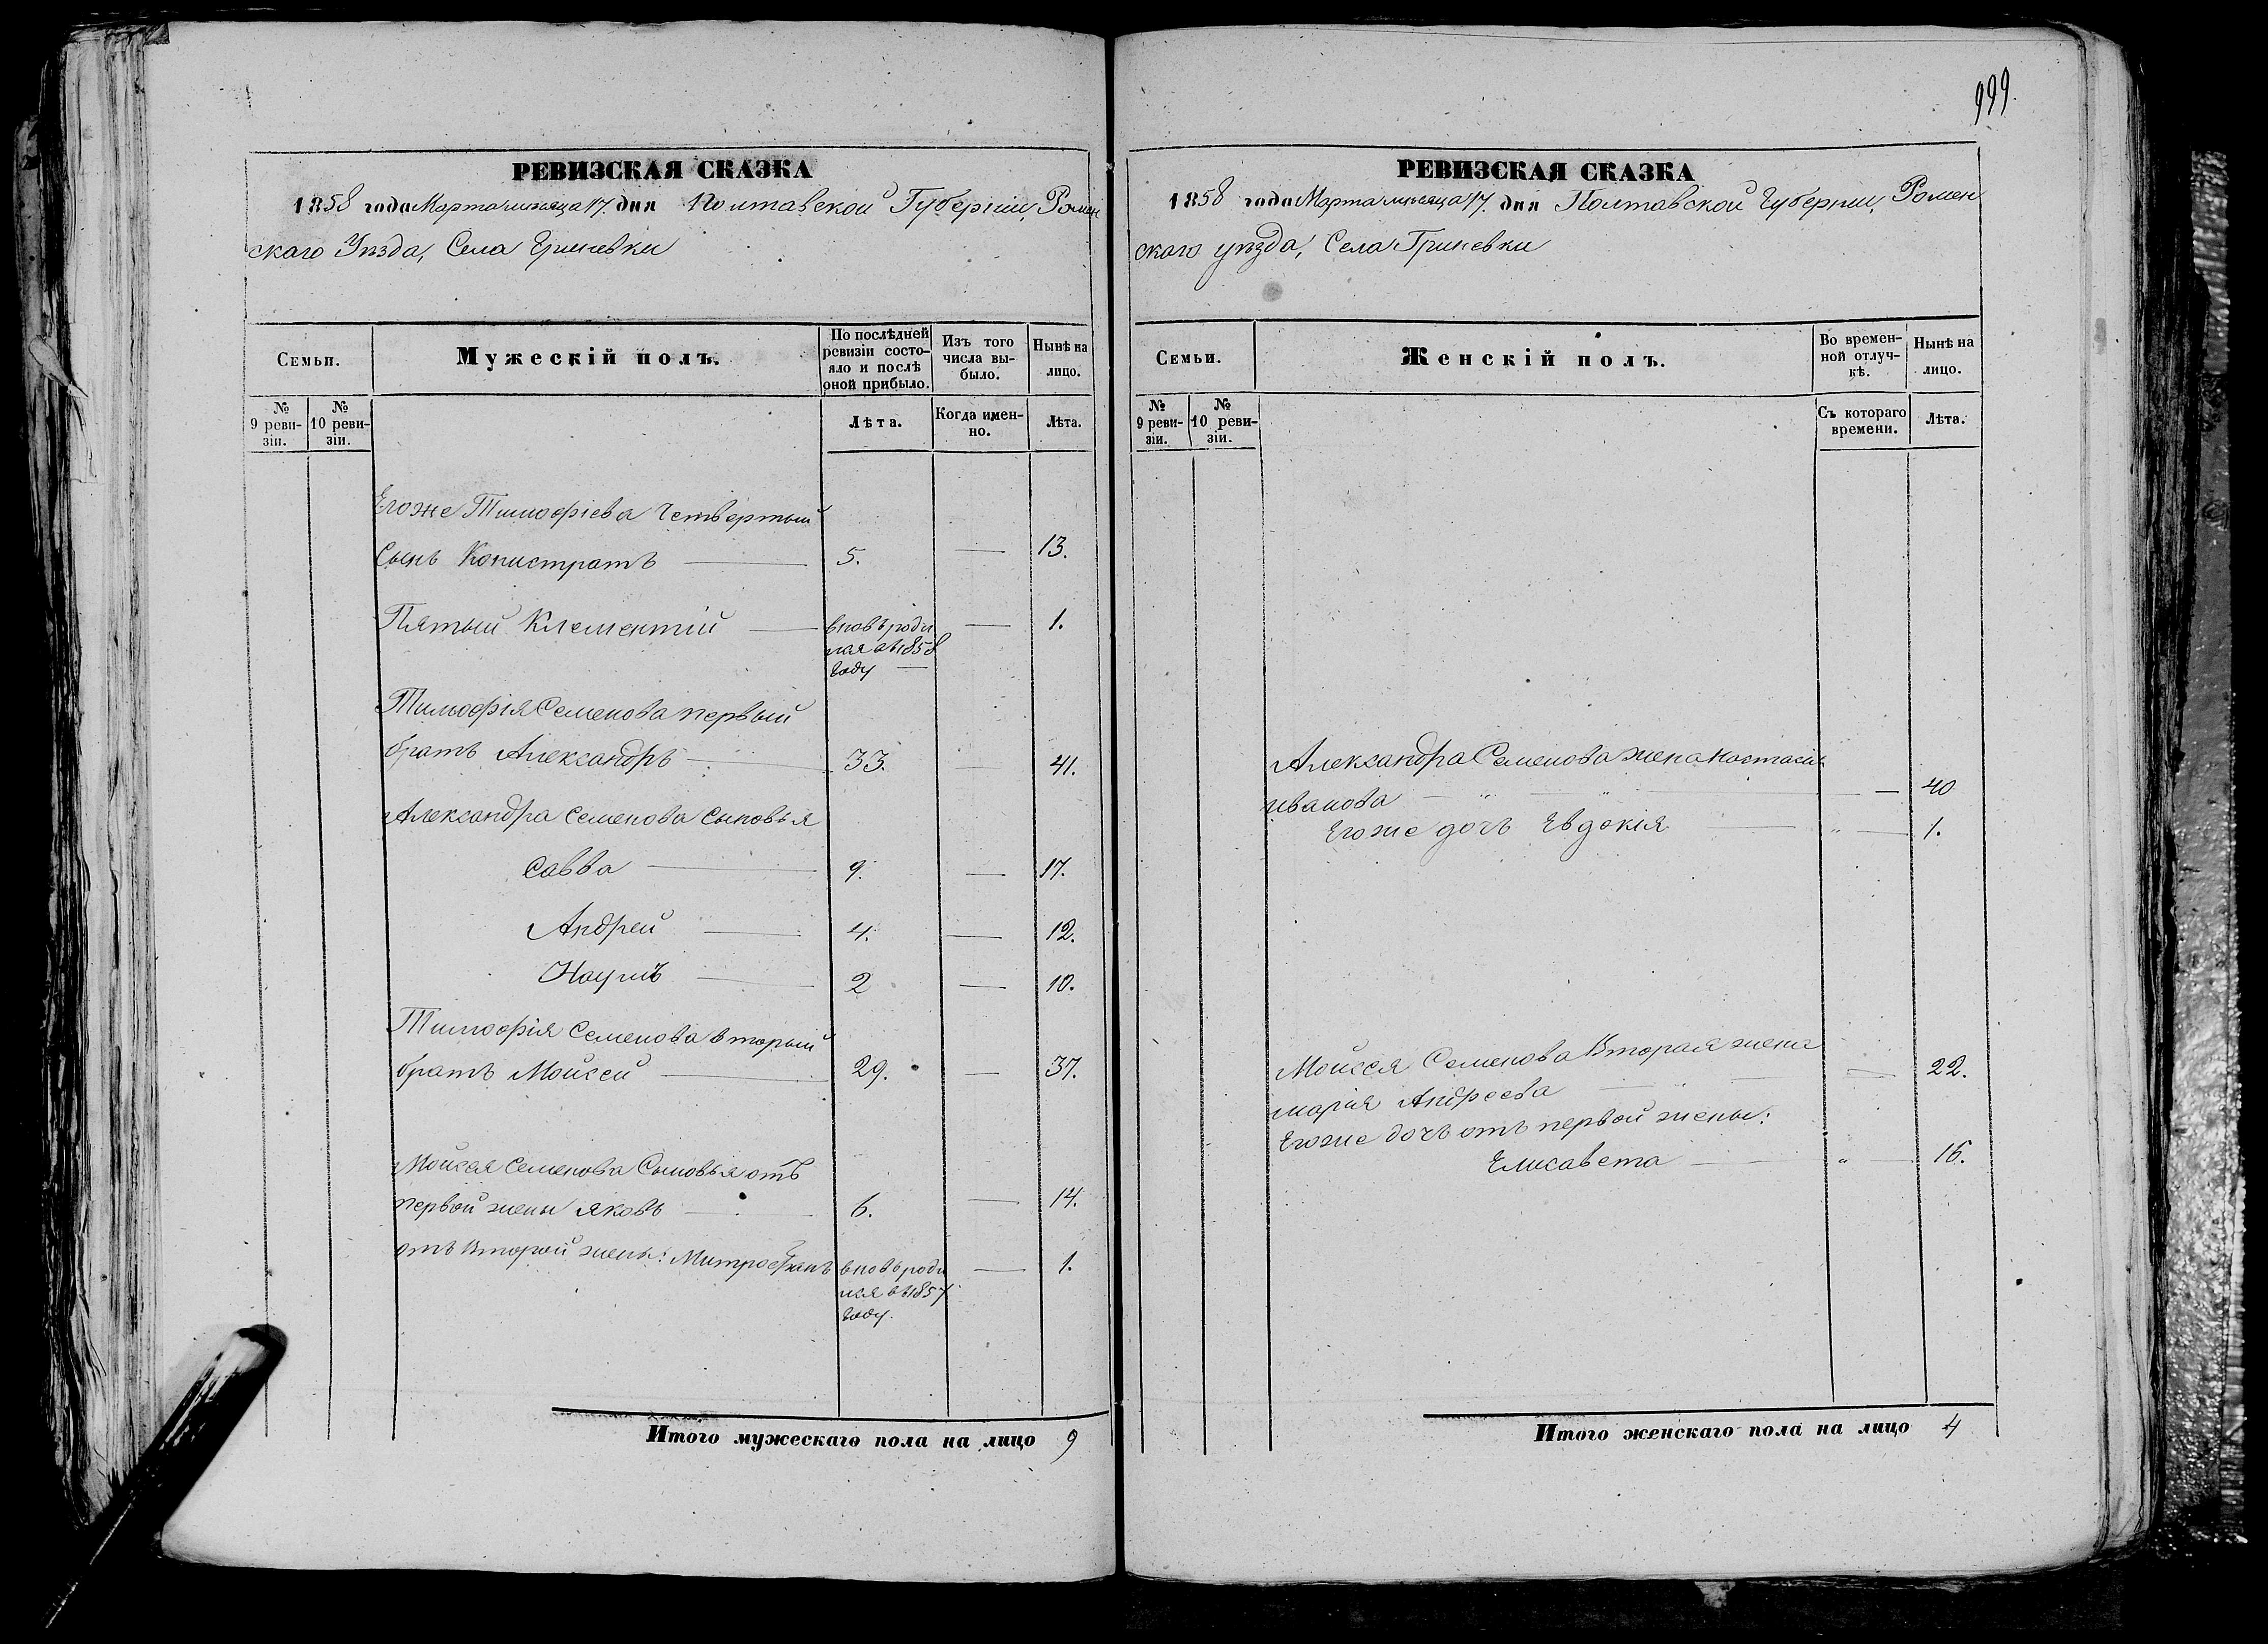 999.
РЕВИЗСКАЯ СКАЗКА
1858 года Марта мѣсяца 17. дня Полтавской Губерніи, Ромен
скаго Уѣзда, Села Гриневки
Семьи.
Мужескій полъ.
По послѣдней ревизіи состояло и послѣ оной прибыло.
Изъ того числа выбыло.
Нынѣ на лицо.
№ 9 ревизіи.
№ 10 ревизіи.
Лѣта.
Когда именно.
Лѣта.
Егоже Тимофіева Четвертый
Сынъ Конистратъ — 5. — 13.
Пятый Клементій — вновь роди — 1.
лся въ 1858
году —
Тимофія Семенова первый
братъ Александръ — 33. — 41.
Александра Семенова Сыновья
Савва — 9. — 17.
Андрей — 4. — 12.
Наумъ — 2 — 10.
Тимофія Семенова вторый
братъ Мойсей — 29. — 37.
Мойсея Семенова Сыновья отъ
первой жены Яковъ — 6. — 14.
отъ Второй жены: Митрофанъ вновь роди — 1.
лся въ 1857
году.
Итого мужескаго пола на лицо 9
РЕВИЗСКАЯ СКАЗКА
1858 года Марта мѣсяца 17. дня Полтавской Губерніи, Ромен
скаго уѣзда, Села Гриневки
Семьи.
Женскій полъ.
Во временной отлучкѣ.
Нынѣ на лицо.
№ 9 ревизіи.
№ 10 ревизіи.
Съ котораго времени.
Лѣта.
Александра Семенова жена Настасія
Иванова — " — " — — 40
Егоже дочь Евдокія — " — 1.
Мойсея Семенова Вторая жена
Марія Андреева — " — — 22.
Егоже дочь отъ первой жены:
Елисавета — " — 16.
Итого женскаго пола на лицо 4